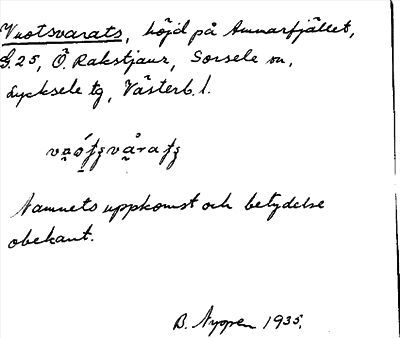 Vuotsvarats, höjd på Ammarfjället,
G.25, Ö. Rakstjaur, Sorsele sn,
Lycksele tg, Västerb. l.
Namnets uppkomst och betydelse
obekant.
B. Nygren 1935.